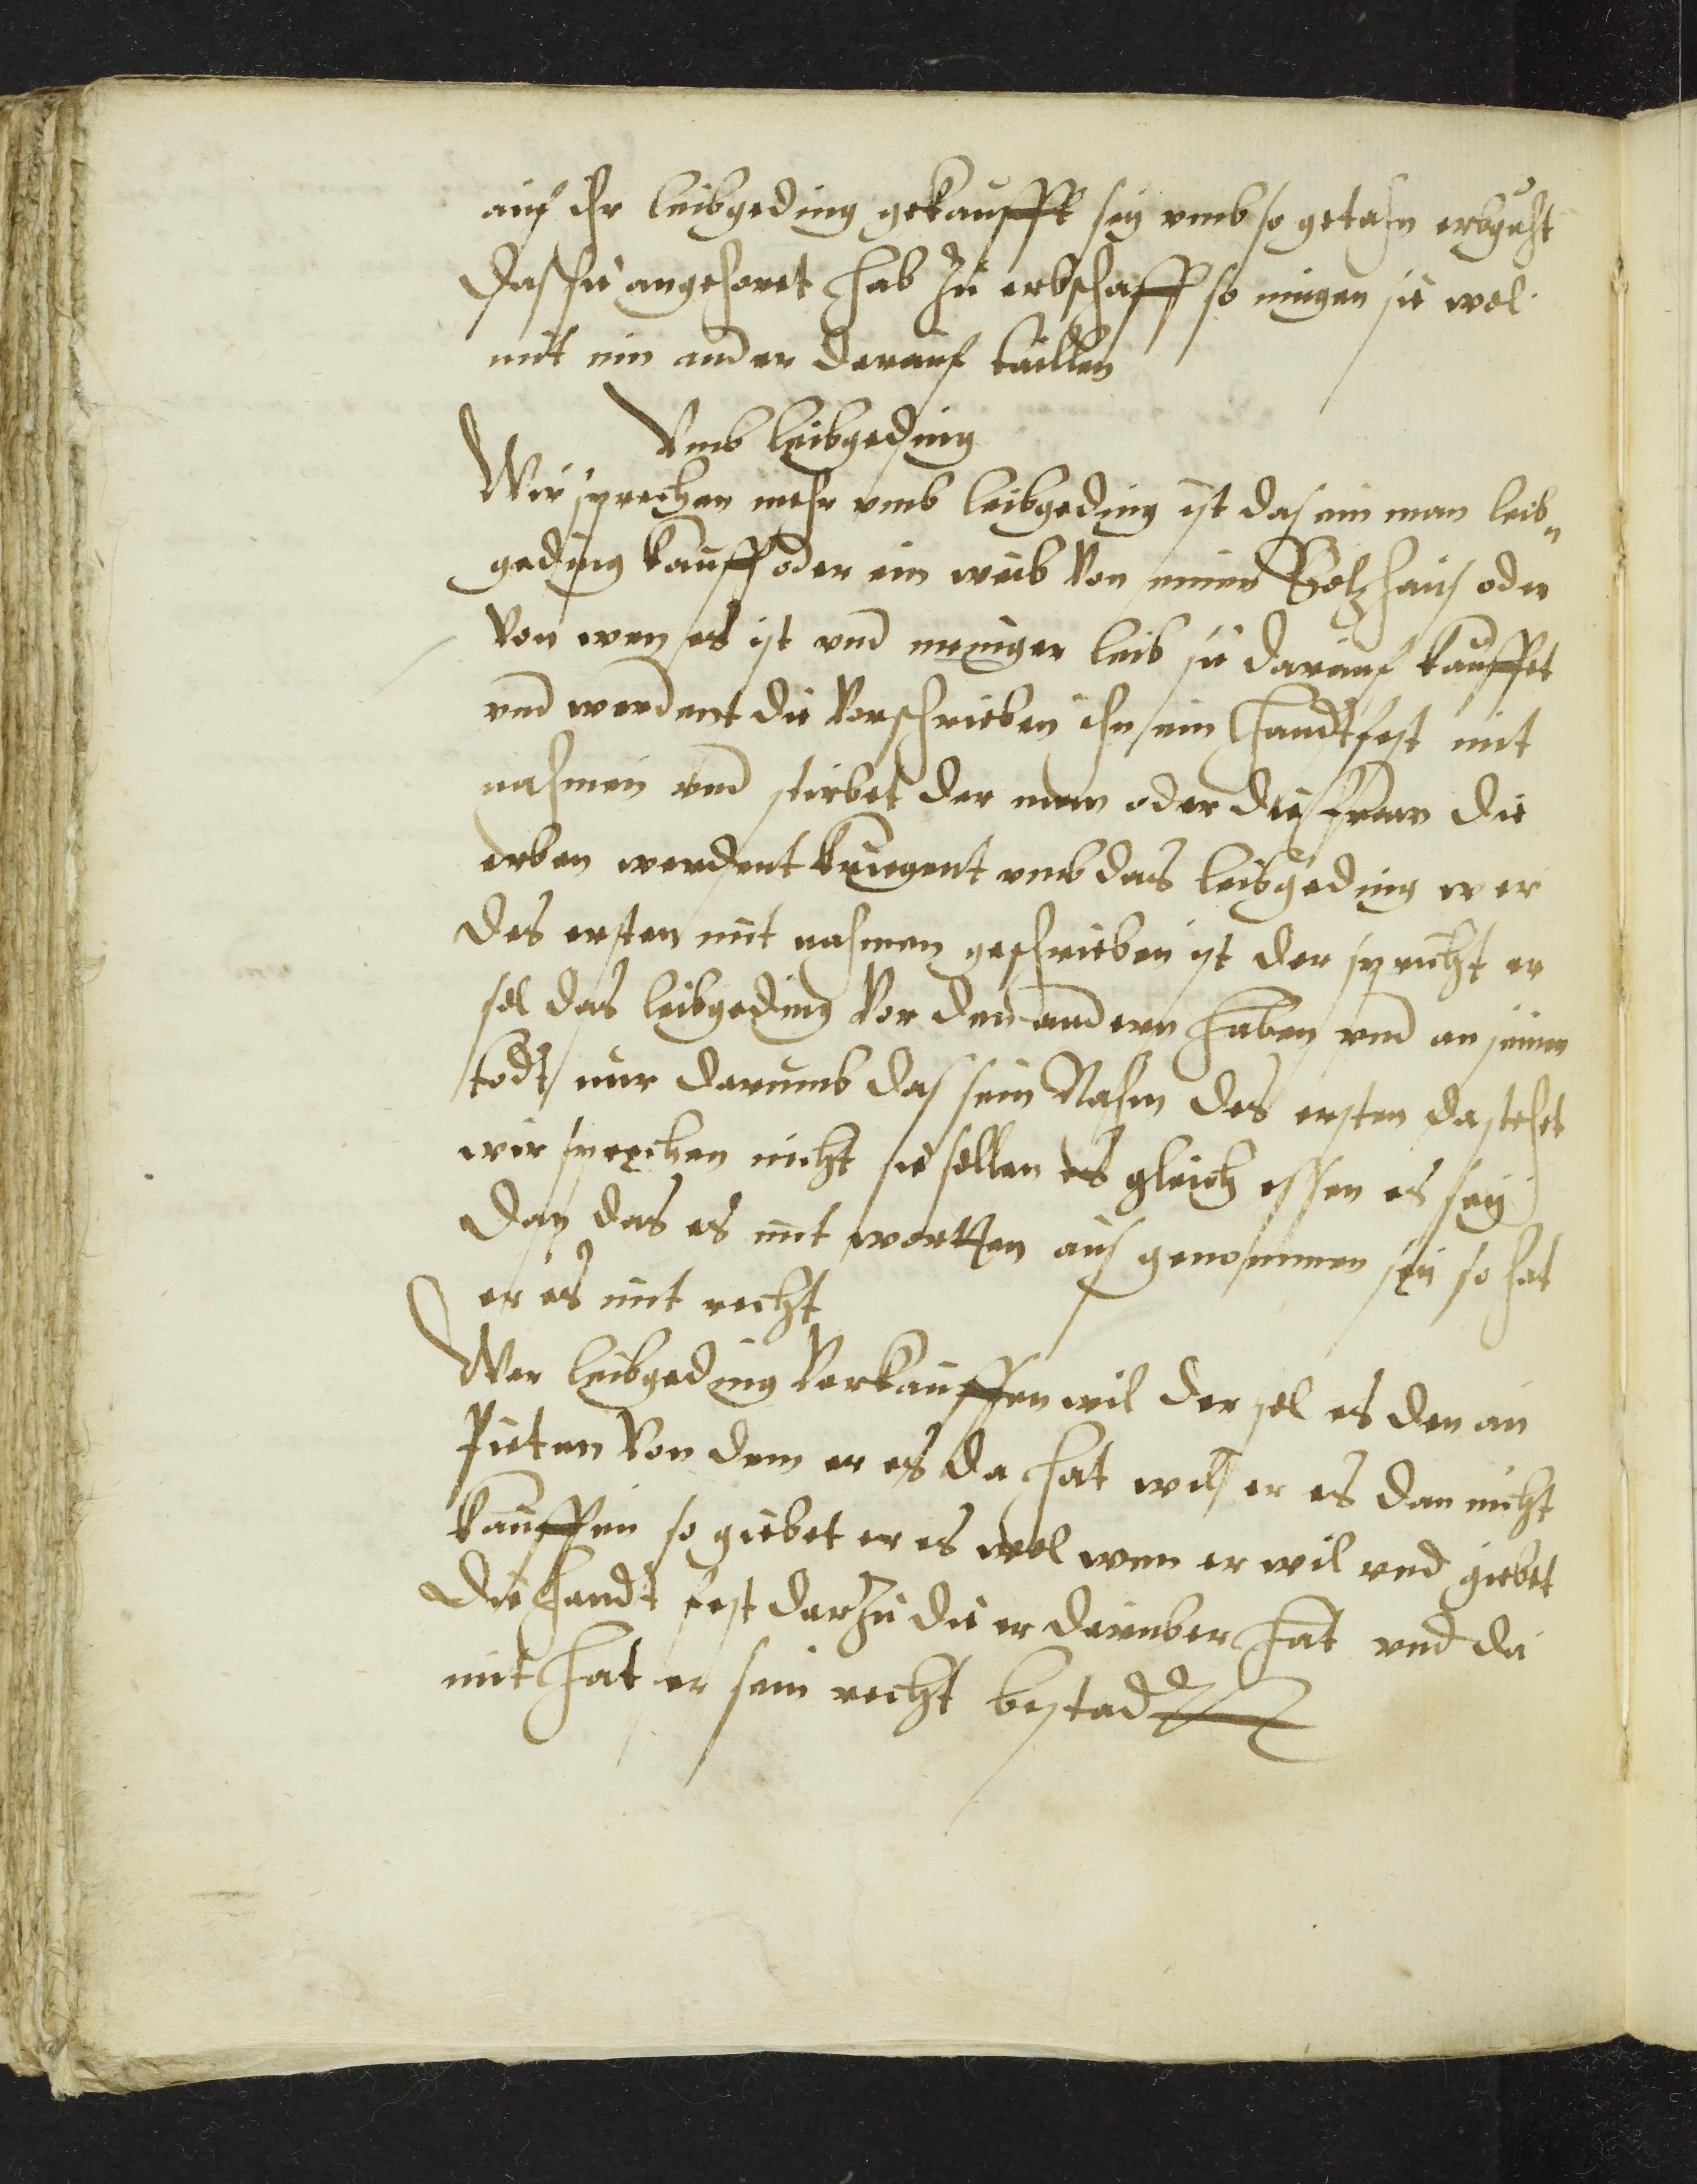 auf ihr leibgeding gekaufft sey vmb so getahn erbguht
das sie angehoret hab zu erbschafft so mugen sie wol
mit ein ander darauf taillen
Vmb leibgeding
Wir sprechen mehr vmb leibgeding ist das ein man leib„
geding kauff oder ein weib von einem Gotzhaus oder
von wem es ist vnd meniger leib sie darauf kauffet
vnd werdent die verschrieben ihn ein handtfest mit
nahmen vnd stirbet der man oder die fraw die
erben werdent kriegent vmb das leibgeding wer
des ersten mit nahmen geschrieben ist der spricht er
sol das leibgeding vor den andern haben vnd an seinen
todt nur darumb das sein Nahm des ersten da stehet
wir sprechen nicht sie sollen es gleich essen es sey
dan das es mit wortten aus genohmmen sey so hat
er es mit recht
Wer leibgeding verkauffen wil der sol es den an
pieten von dem er es da hat wil er es dan nicht
kauffen so giebet er es wol wem er wil vnd giebet
die handt fest darzu die er darvber hat vnd da
mit hat er sein recht bestad